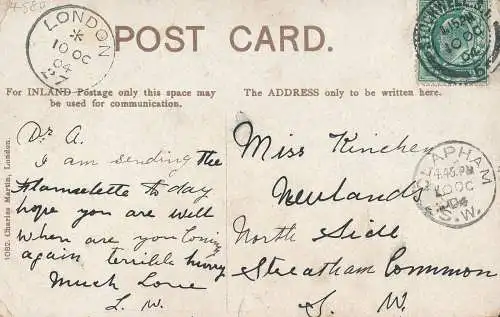 LONDON
10 OC
04
27
POST CARD.
10 OC
04
For INLAND Postage only this space may
be used for communication.
The ADDRESS only to be written here.
Dr A.
I am sending the
Flannelette to day
hope you are well
When are you Coming
again terrible hurry
Much Love
L. W.
1082. Charles Martin, London.
Miss Kinchen
Newlands
North Side
Streatham Common
S. W.
CLAPHAM
4.45 PM
10 OC
04
S.W.